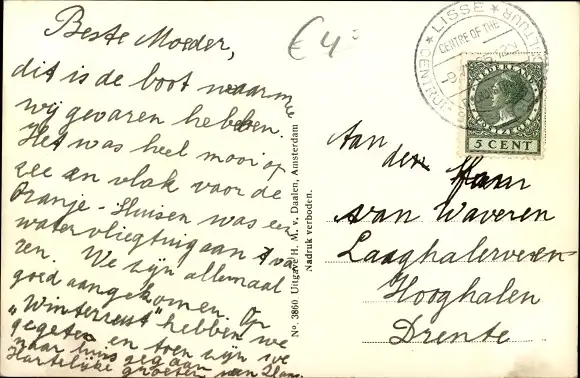 Beste Moeder,
dit is de boot waarmee
wij gevaren hebben.
Het was heel mooi op
zee en vlak voor de
Oranje-Sluisen was een
watervliegtuig aan 't va-
ren. We zijn allemaal
goed aangekomen. Op
„Winterrust" hebben we
gegeten en toen zijn we
naar huis gegaan
Hartelijke groeten van Hans
€4
No. 3860 Uitgave H. M. v. Daalen, Amsterdam
Nadruk verboden.
LISSE
CENTRE OF THE
CENTRUM
NEDERLAND
5 CENT
Aan
den Heer
van Waveren
Laaghalerveen
Hooghalen
Drente